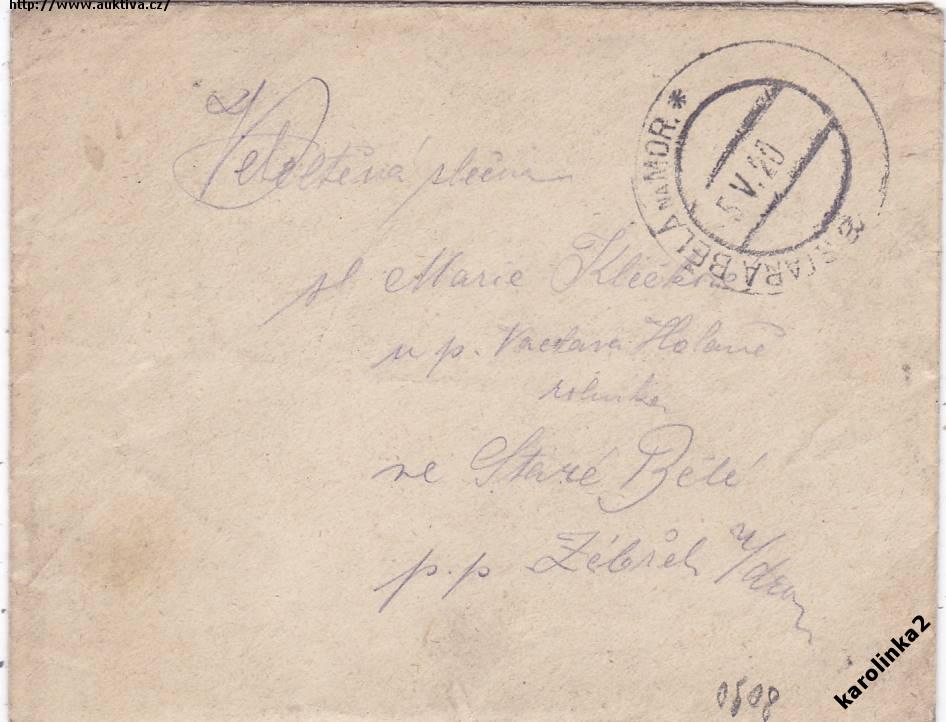 http://www.auktiva.cz/
STARÁ BĚLÁ NA MOR. *
5 V. 20
Velectěná slečna
sl Marie Klečkova
u p. Vaclava Holaně
rolnika
ve Staré Bělé
p.p Zábřeh n/Odrou
0508
karolinka2